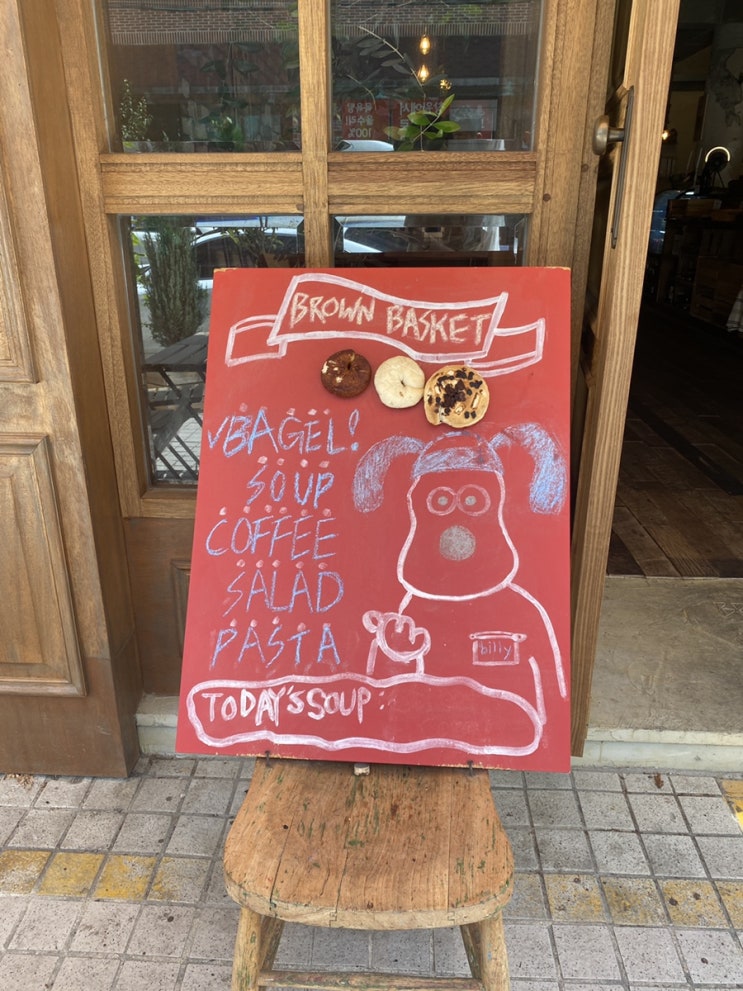 BROWN BASKET
✓BAGEL!
SOUP
COFFEE
SALAD
PASTA
billy
TODAY'S SOUP: